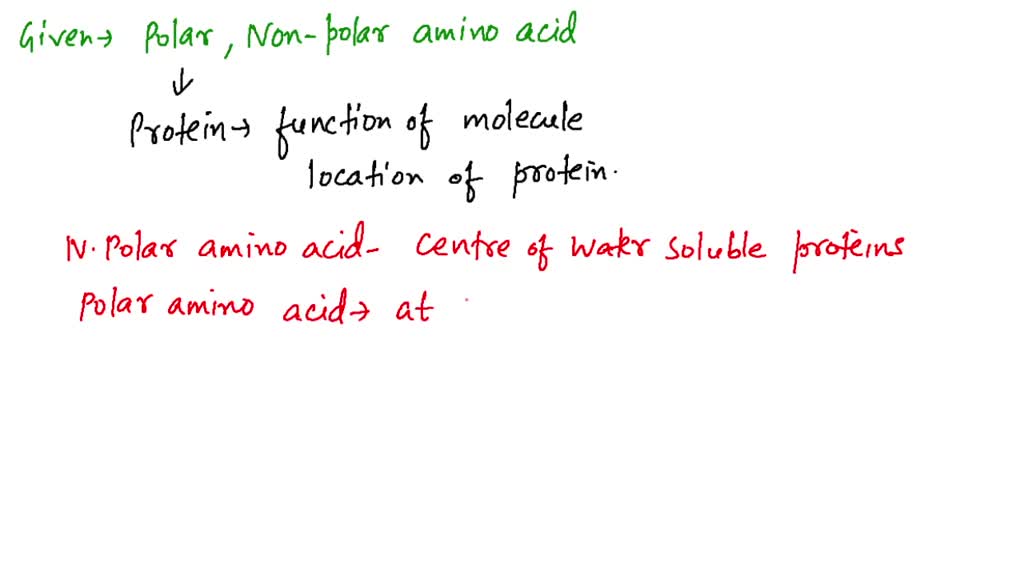 Given→ Polar, Non-polar amino acid
↓
Protein→ function of molecule
location of protein.
N. Polar amino acid- Centre of water soluble proteins
Polar amino acid→ at